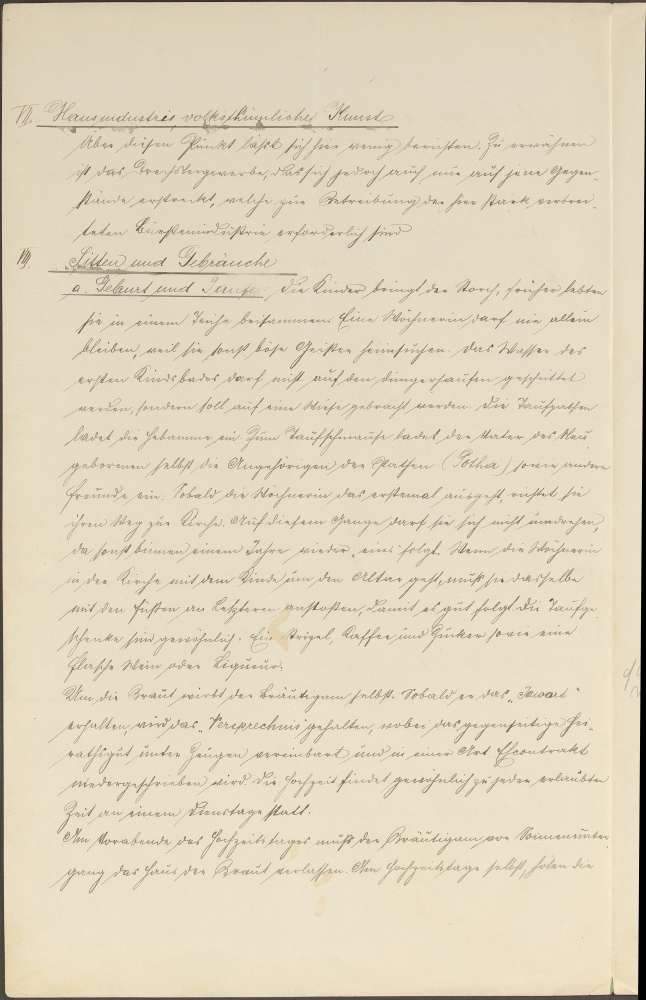 VII. Hausindustrie, volksthümliche Kunst
Über diesen Punkt läßt sich hier wenig berichten. Zu erwähnen
ist das Drechslergewerbe, das sich jedoch auch nur auf jene Gegen-
stände erstreckt, welche zur Betreibung der hier stark verbrei-
teten Bürstenindustrie erforderlich sind
VIII. Sitten und Gebräuche
a. Geburt und Taufe. Die Kinder bringt der Storch, früher lebten
sie in einem Teiche beisammen. Eine Wöchnerin darf nie allein
bleiben, weil sie sonst böse Geister heimsuchen. Das Wasser des
ersten Kindsbades darf nicht auf den Düngerhaufen geschüttet
werden, sondern soll auf eine Wiese gebracht werden. Die Taufpathen
ladet die Hebamme ein. Zum Taufschmause ladet der Vater des Neu
geborenen selbst die Angehörigen der Pathen (Potha) sowie andere
Freunde ein. Sobald die Wöchnerin das erstemal ausgeht, richtet sie
ihren Weg zur Kirche. Auf diesem Gange darf sie sich nicht umdrehen,
da sonst binnen einem Jahre wieder eines folgt. Wenn die Wöchnerin
in der Kirche mit dem Kinde um den Altar geht, muß sie dasselbe
mit den Füßen an Letzteren anstoßen, damit es gut folgt. Die Taufge
schenke sind gewöhnlich: Ein Strizel, Kaffee und Zucker sowie eine
Flasche Wein oder Liqueur.
Um die Braut wirbt der Bräutigam selbst. Sobald er das „Jawort"
erhalten, wird das „Versprechnis gehalten, wobei das gegenseitige Hei-
rathsgut unter Zeugen vereinbart und in einer Art Ehcontrakt
niedergeschrieben wird. Die Hochzeit findet gewöhnlich zu jeder erlaubten
Zeit an einem Dienstage statt.
Am Vorabende des Hochzeitstages muß der Bräutigam vor Sonnenunter
gang das Haus der Braut verlassen. Am Hochzeitstage selbst, holen die